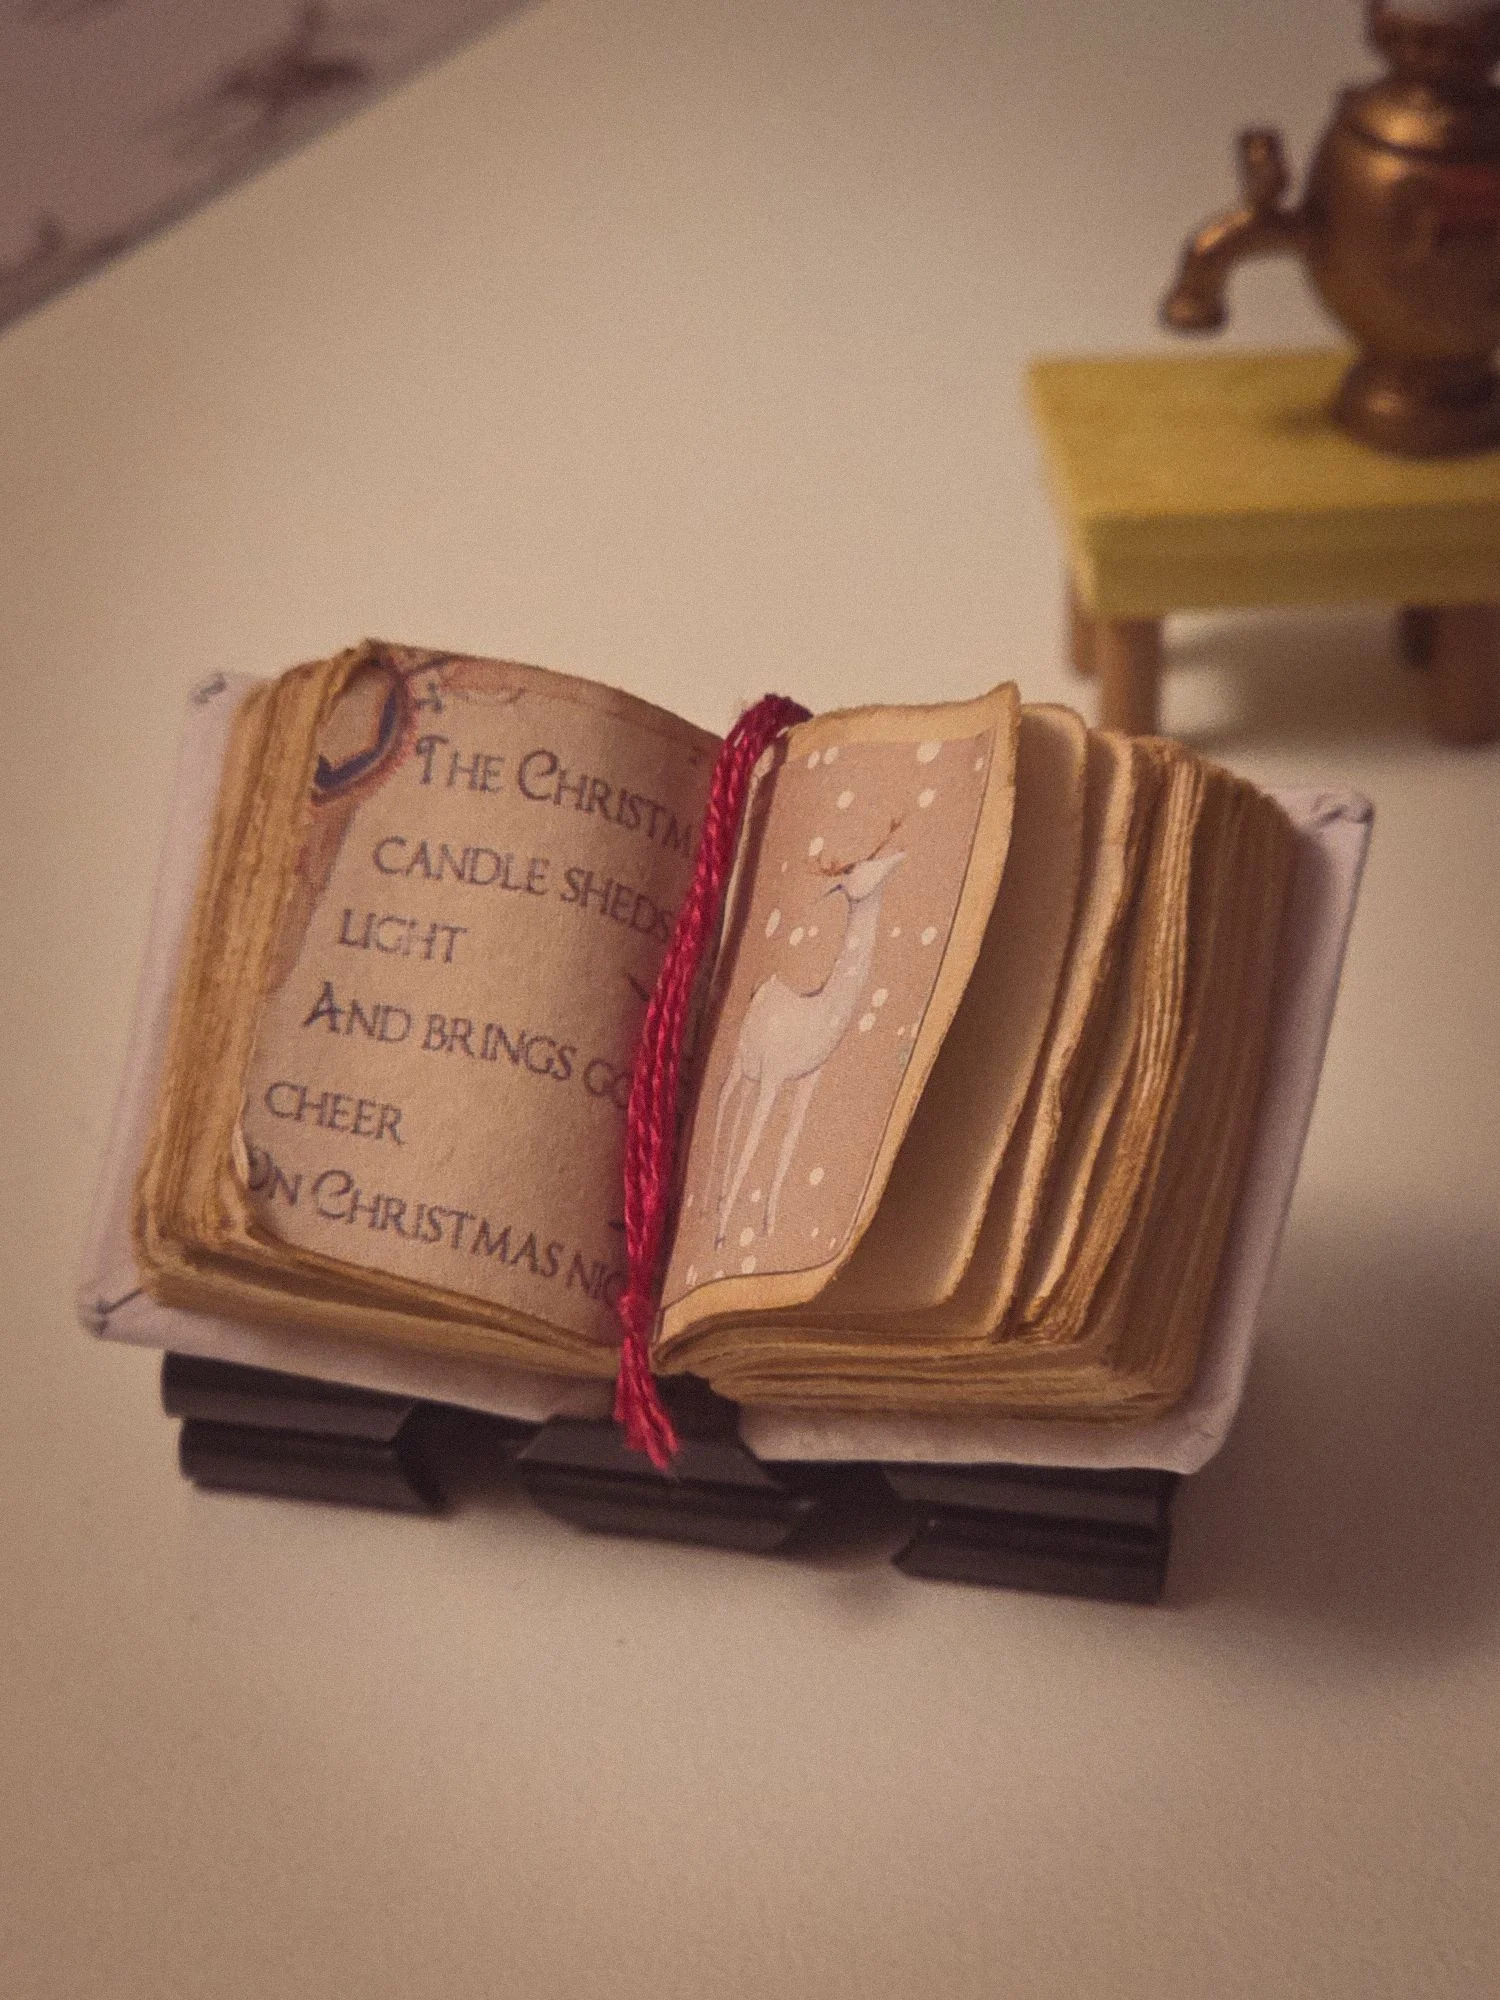 The Christm
candle sheds
light
And brings go
cheer
On Christmas nig